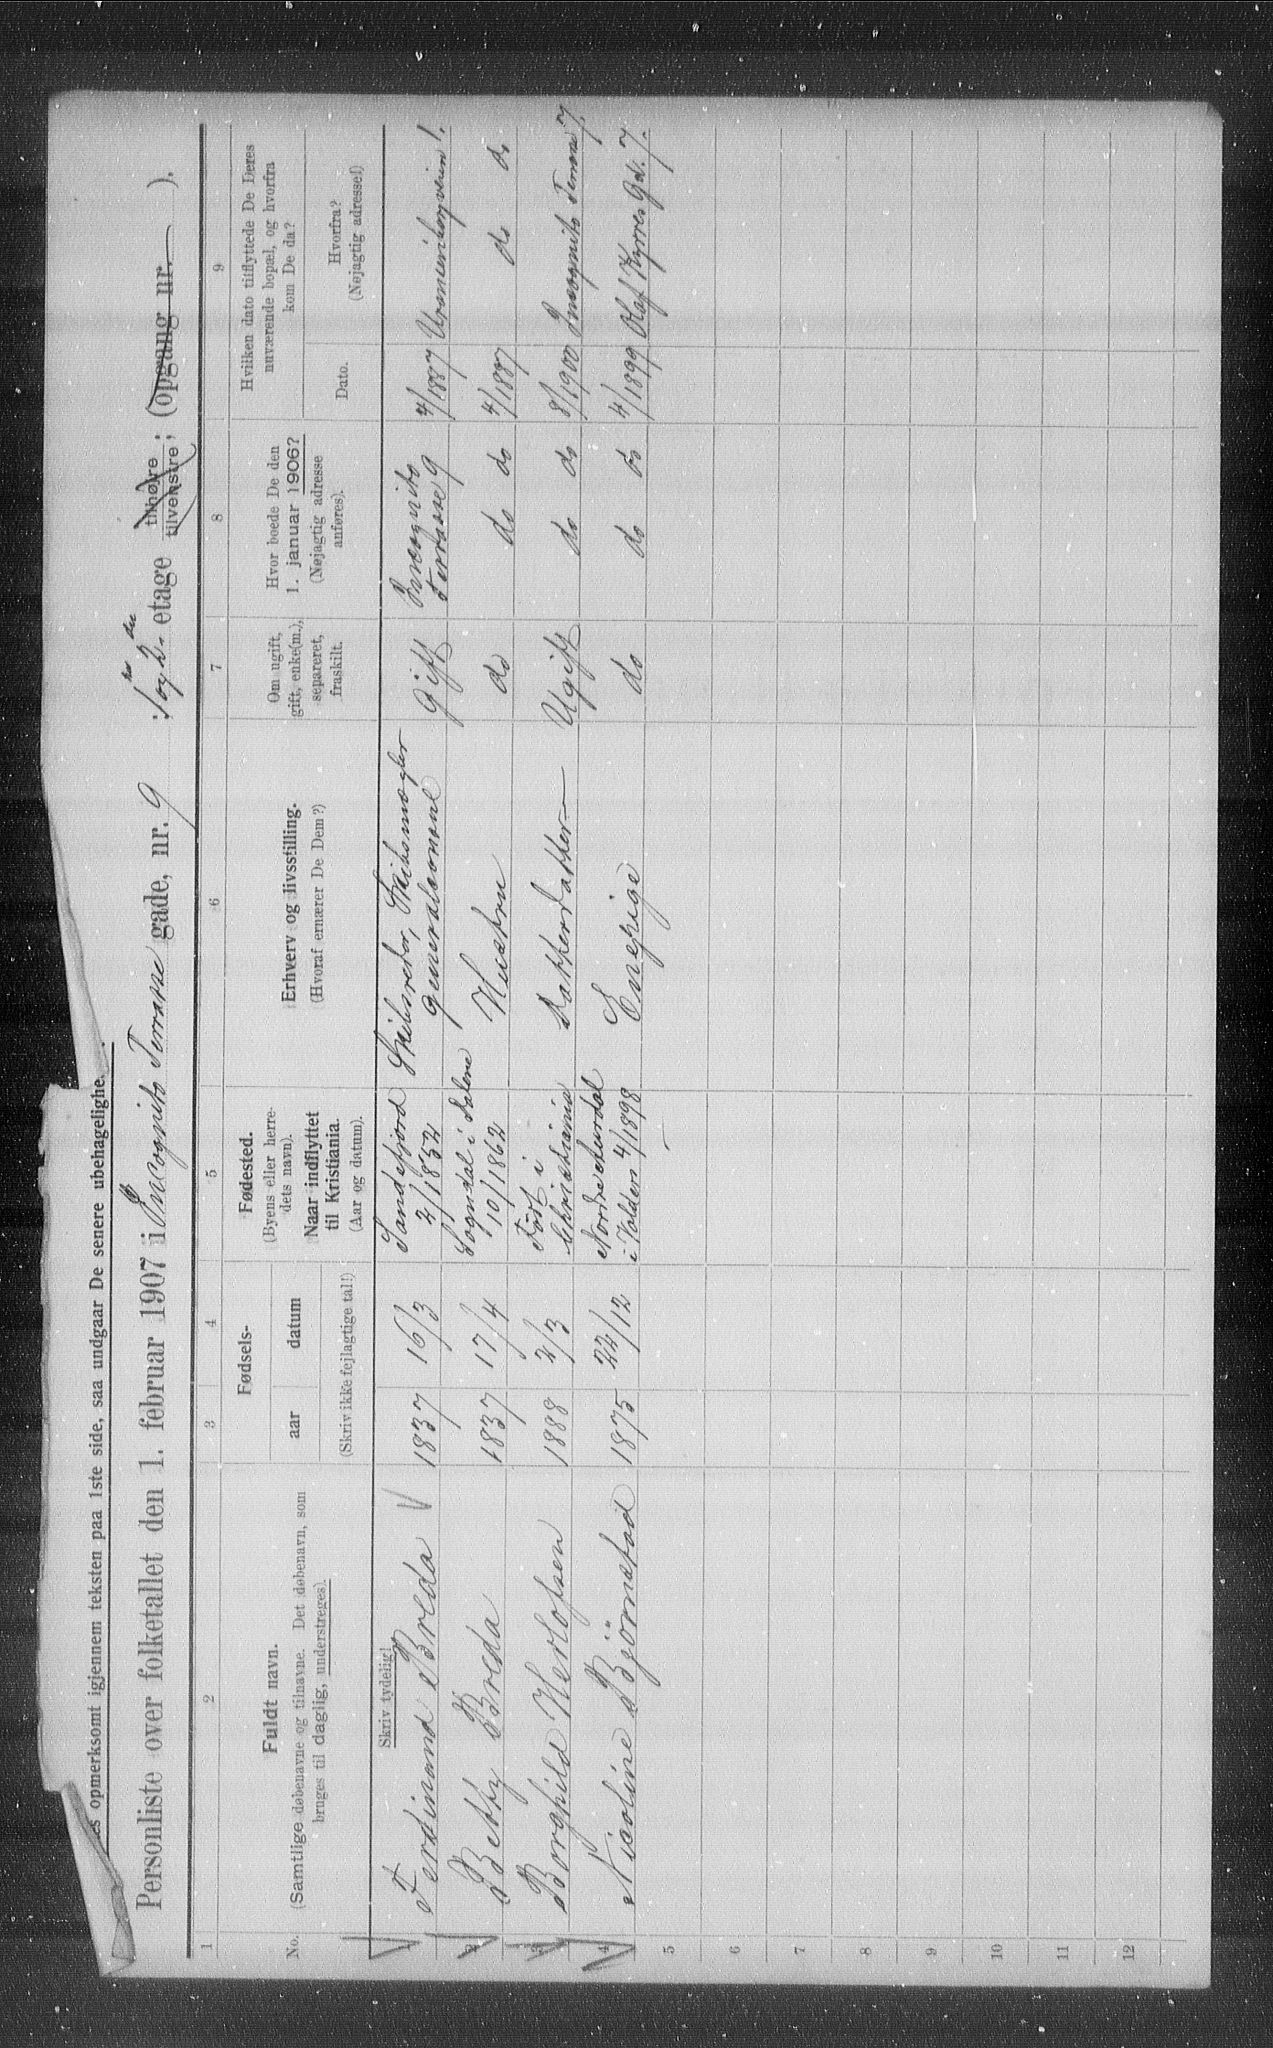 es opmerksomt igjennem teksten paa 1ste side, saa undgaar De senere ubehagelighe
Personliste over folketallet den 1. februar 1907 i Incognito Terrasse gade, nr. 9 : 1 og 2. etage tilhøjre tilvenstre; (opgang nr. — ).
1 2 3 4 5 6 7 8 9
No.
Fuldt navn.
(Samtlige døbenavne og tilnavne. Det døbenavn, som
bruges til daglig, understreges).
Fødsels-
aar datum
(Skriv ikke fejlagtige tal!)
Fødested.
(Byens eller herre-
dets navn).
Naar indflyttet
til Kristiania.
(Aar og datum).
Erhverv og livsstilling.
(Hvoraf ernærer De Dem?)
Om ugift,
gift, enke(m.),
separeret,
fraskilt.
Hvor boede De den
1. januar 1906?
(Nøjagtig adresse
anføres).
Hvilken dato tilflyttede De Deres
nuværende bopæl, og hvorfra
kom De da?
Dato.
Hvorfra?
(Nøjagtig adresse!)
Skriv tydelig!
1 Ferdinand Breda 1837 16/3 Sandefjord 2/1852 Skibsreder, Skibsmægler generalconsul Gift Incognito Terrasse 9 4/1887 Uranienborgveien 1.
2 Betty Breda 1837 17/4 Sogndal i Dalene 10/1862 Hustru do do do 4/1887 do do
3 Borghild Herlofsen 1888 2/3 Født i Christiania Datterdatter Ugift do do 8/1900 Incognito Terrasse 7.
4 Nicoline Bjørnstad 1875 22/12 Nordre Aurdal i Valders 4/1898 Enepige do do do 4/1899 Olaf Kyrres Gd. 7.
5
6
7
8
9
10
11
12